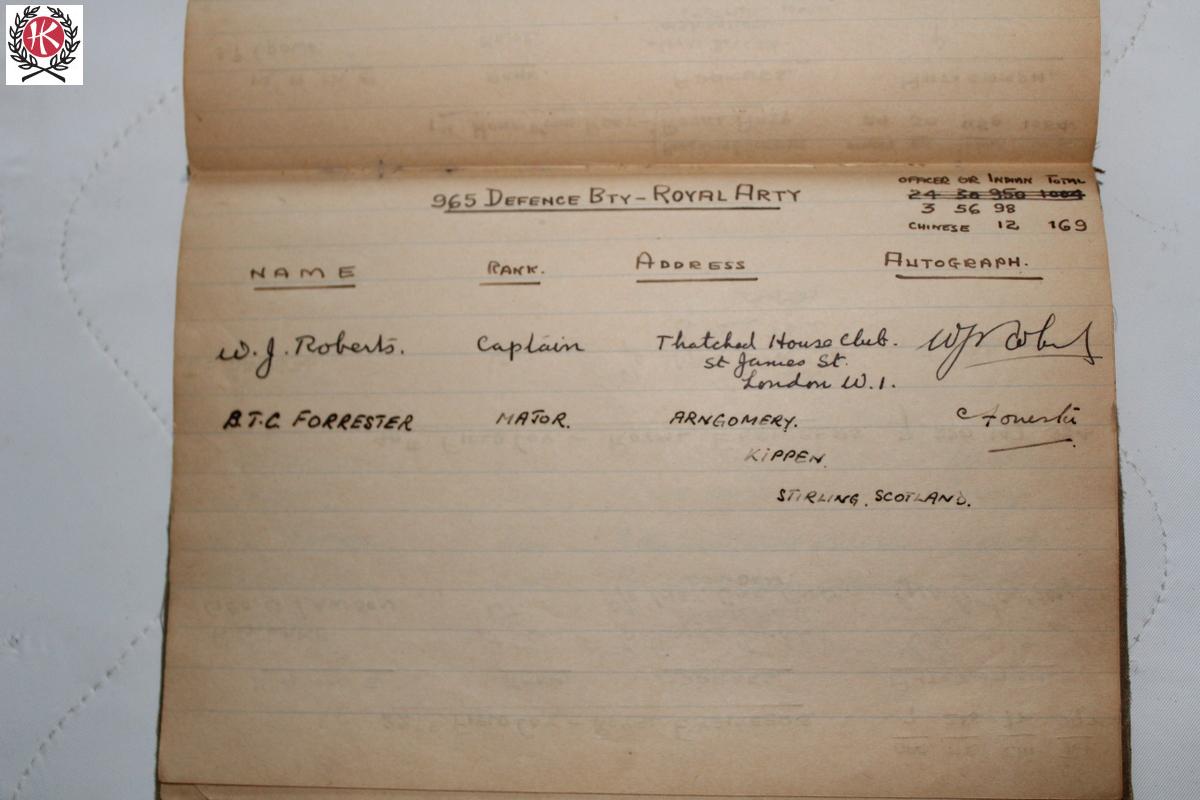 HK
965 DEFENCE BTY - ROYAL ARTY
OFFICER OR INDIAN TOTAL
24 30 950 1004
3 56 98
CHINESE 12 169
NAME RANK. ADDRESS AUTOGRAPH.
W.J. Roberts. Captain Thatched House Club. WJ Roberts
St James St.
London W.1.
B.T.C. FORRESTER MAJOR. ARNGOMERY.
KIPPEN.
STIRLING. SCOTLAND.